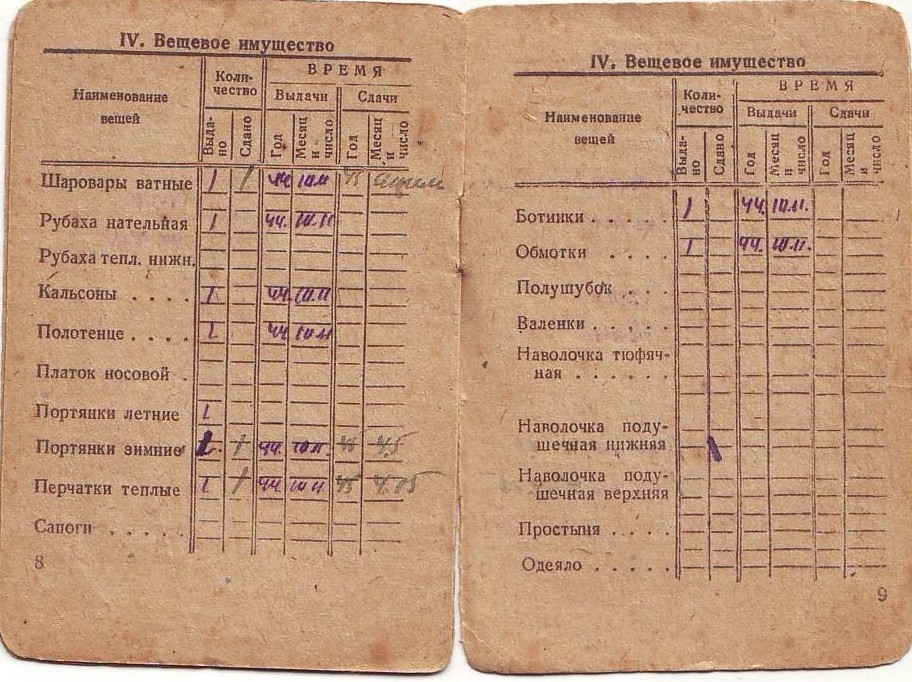 IV. Вещевое имущество
Наименование вещей
Коли-
чество
ВРЕМЯ
Выдачи
Сдачи
Выда-
но
Сдано
Год
Месяц и число
Год
Месяц и число
Шаровары ватные 1 / 44 10.11 45
Рубаха нательная 1 44. 10.11
Рубаха тепл. нижн.
Кальсоны . . . . 1 44 10.11
Полотенце . . . . 1 44 10.11
Платок носовой .
Портянки летние 1
Портянки зимние / 44. 10.11 45 4.5
Перчатки теплые 1 / 44 10.11 45 4.05
Сапоги . . . . .
8
IV. Вещевое имущество
Наименование
вещей
Коли-
чество
ВРЕМЯ
Выдачи
Сдачи
Выда-
но
Сдано
Год
Месяц и число
Год
Месяц и число
Ботинки . . . . . 1 44. 10.11.
Обмотки . . . . 1 44. 10.11.
Полушубок . . .
Валенки . . . . .
Наволочка тюфяч-
ная . . . . . .
Наволочка поду-
шечная нижняя
Наволочка поду-
шечная верхняя
Простыня . . . .
Одеяло . . . . .
9